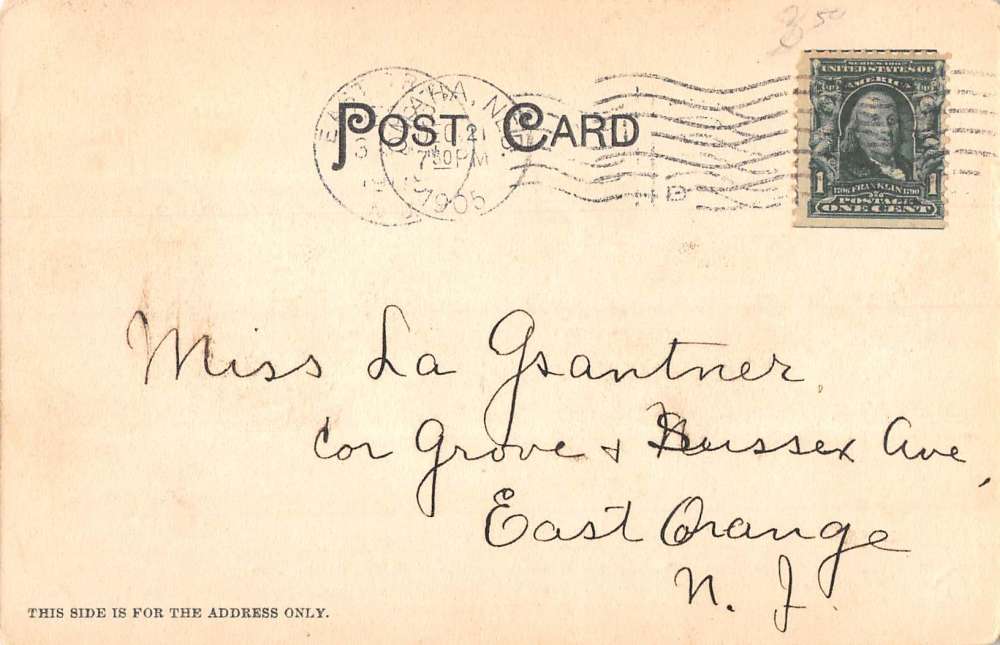 3 50
POST CARD
OMAHA, NEB.
DEC 21
7 30 PM
1905
EAST
SERIES 1902
UNITED STATES OF
AMERICA
1 1
1706 FRANKLIN 1790
POSTAGE
ONE CENT
Miss La Gsantner
Cor Grove + Sussex Ave,
East Orange
N. J.
THIS SIDE IS FOR THE ADDRESS ONLY.